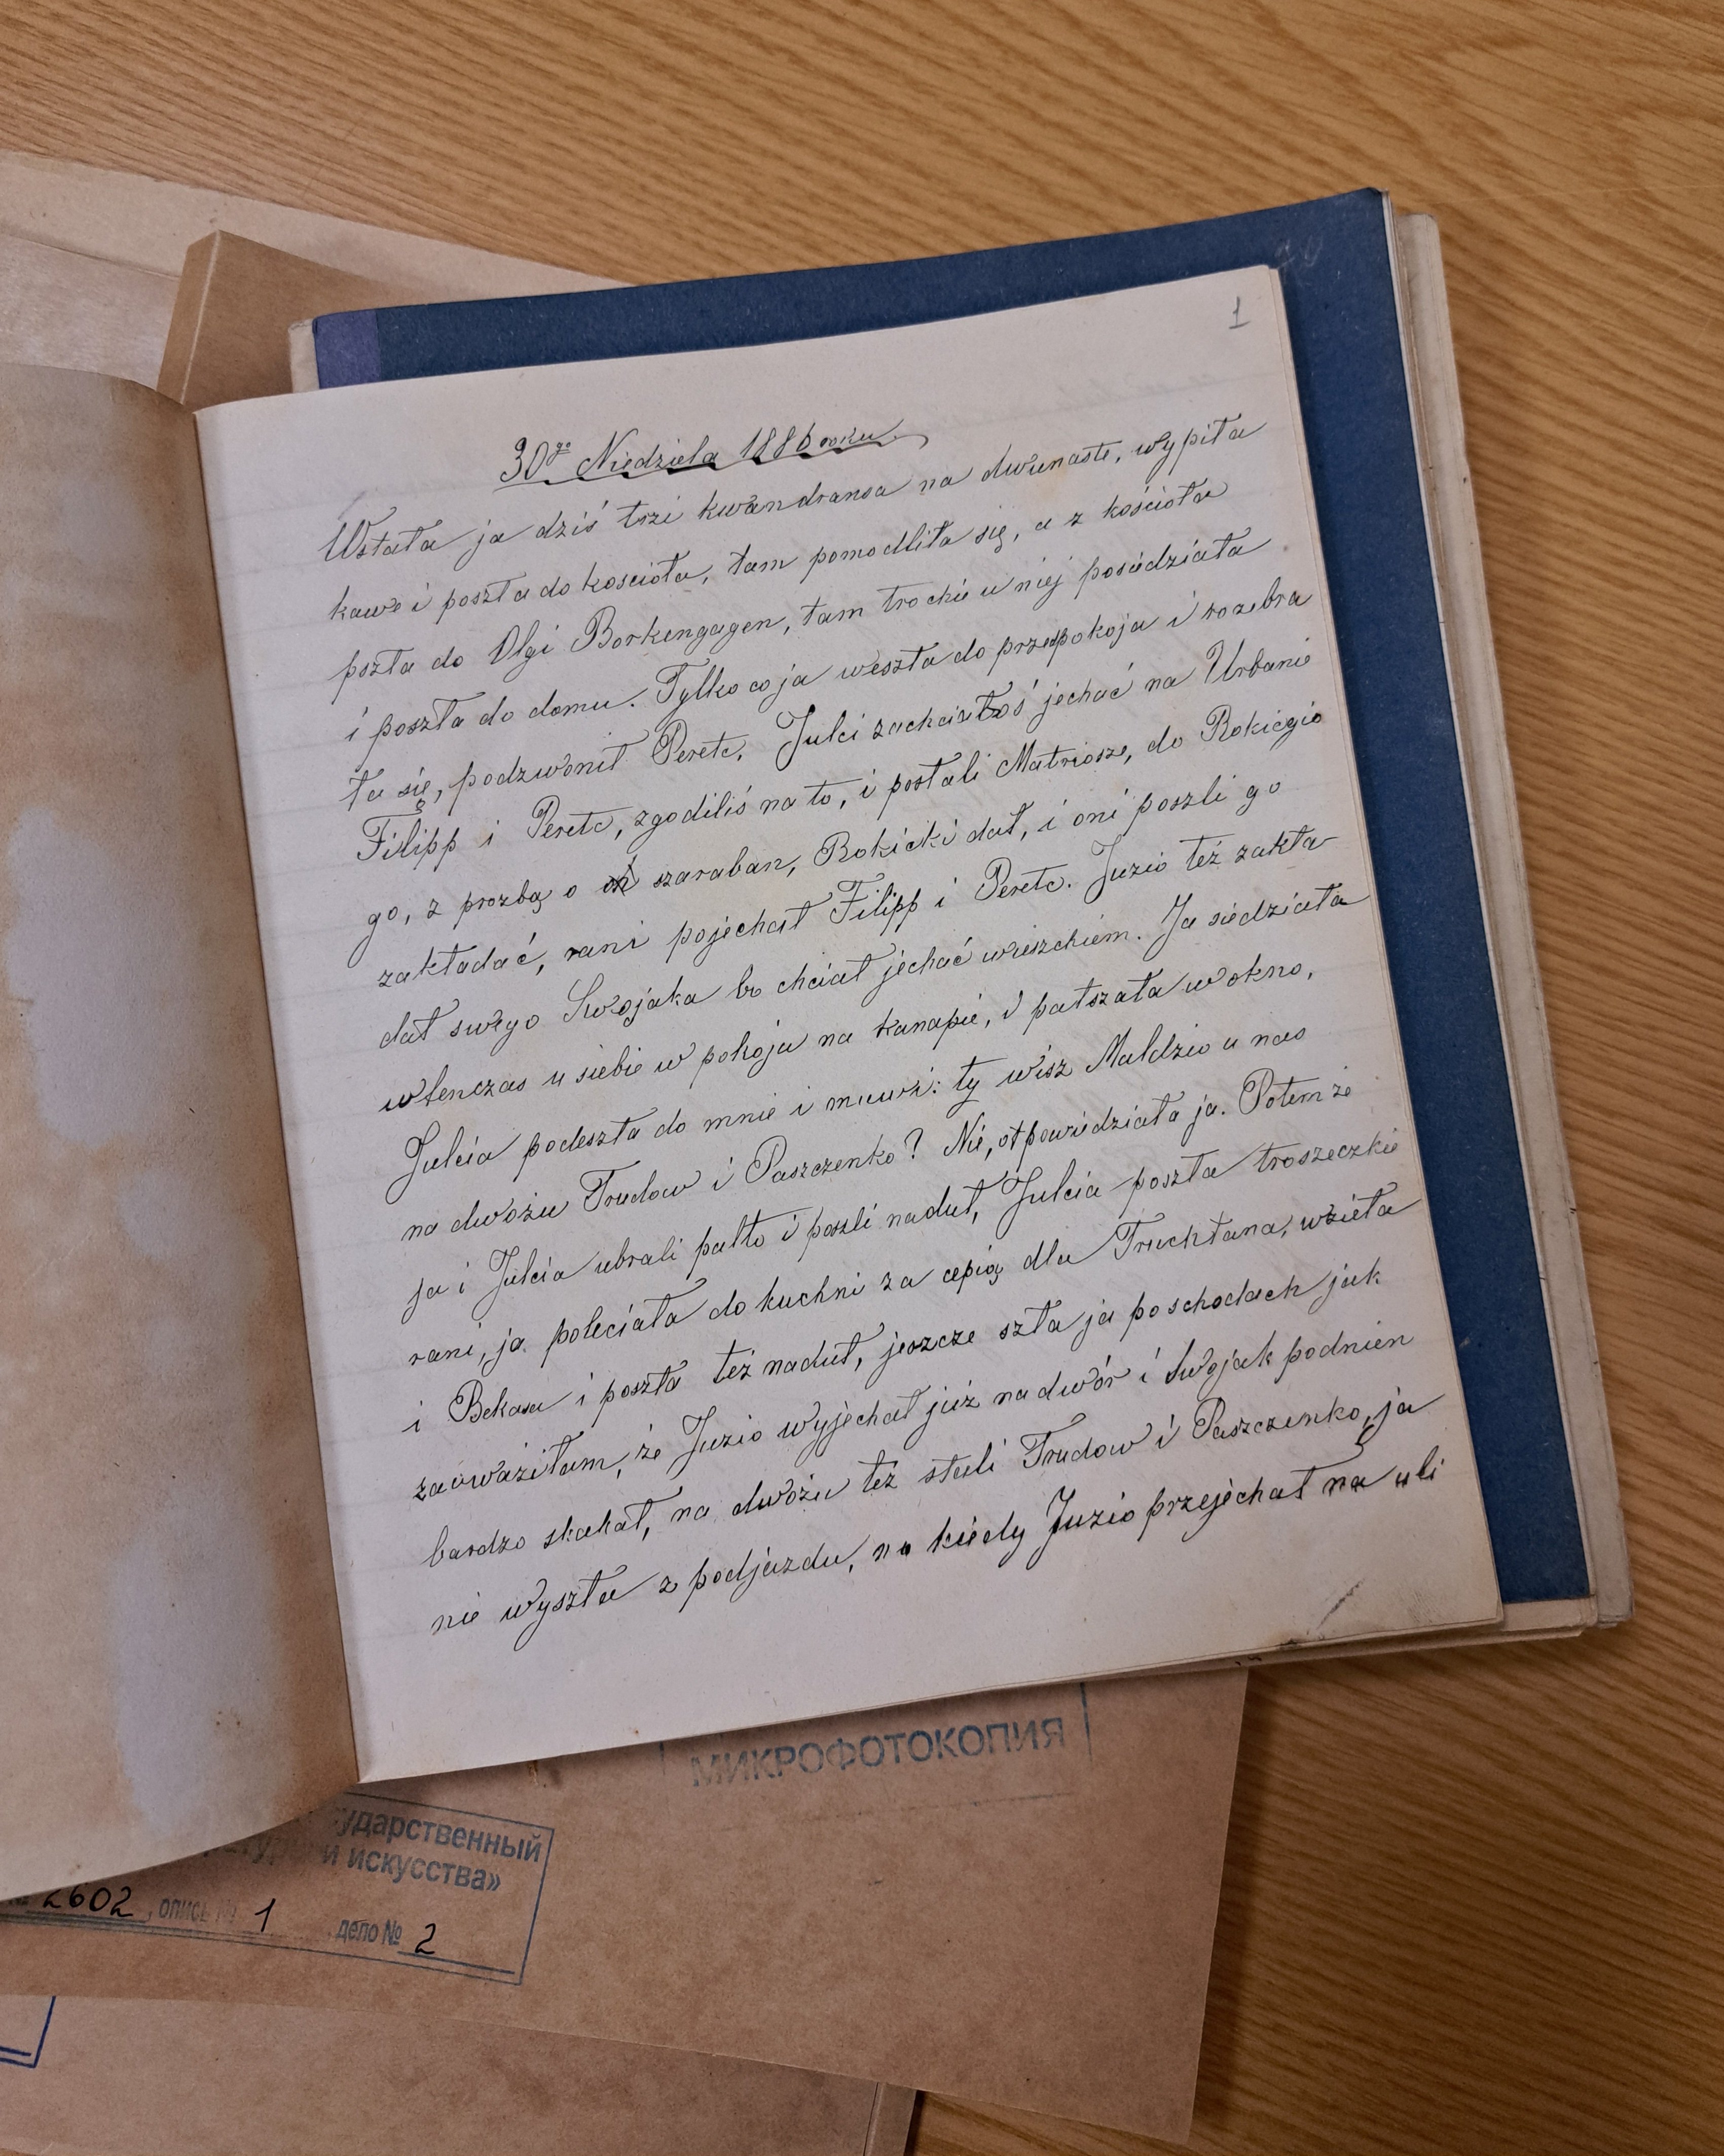 1
30go Niedziela 1886 roku
Wstała ja dziś trzi kwandransa na dwunaste, wypiła
kawe i poszła do koscioła, tam pomodliła się, a z kościoła
pszła do Olgi Borkengagen, tam trochie u niej posiedziała
i poszła do domu. Tylko co ja weszła do przepokoja i rozebra
ła się, podzwonił Peretc. Julci zachciałoś jechać na Urbanie
Filipp i Peretc, zgodiliś na to, i posłali Matriosze, do Rokiegio
go, z prozbą o szaraban, Rokicki dał, i oni poszli go
zakładać, rani pojechał Filipp i Peretc. Juzio też zakła
dał swego Swojaka bo chciał jechać wieszchiem. Ja siedziała
wtenczas u siebie w pokoja na kanapie, i patszała w okno,
Julcia podeszła do mnie i muwi: ty wisz Maldzio u nas
na dwożu Trudow i Paszczenko? Nie, otpowiedziała ja. Potem że
ja i Julcia ubrali palto i poszli naduł, Julcia poszła troszeczkie
rani, ja poleciała do kuchni za cepią dla Truchtana, wzieła
i Bekasa i poszła też naduł, jeszcze szła ja po schodach jak
zauważiłam, że Juzio wyjechał już na dwór i Swojak podnien
bardzo skakał, na dwożu też stali Trudow i Paszczenko, ja
nie wyszła z podjazdu, no kiedy Juzio przejechał na uli
МИКРОФОТОКОПИЯ
ударственный
и искусства»
2602, опись № 1 дело № 2